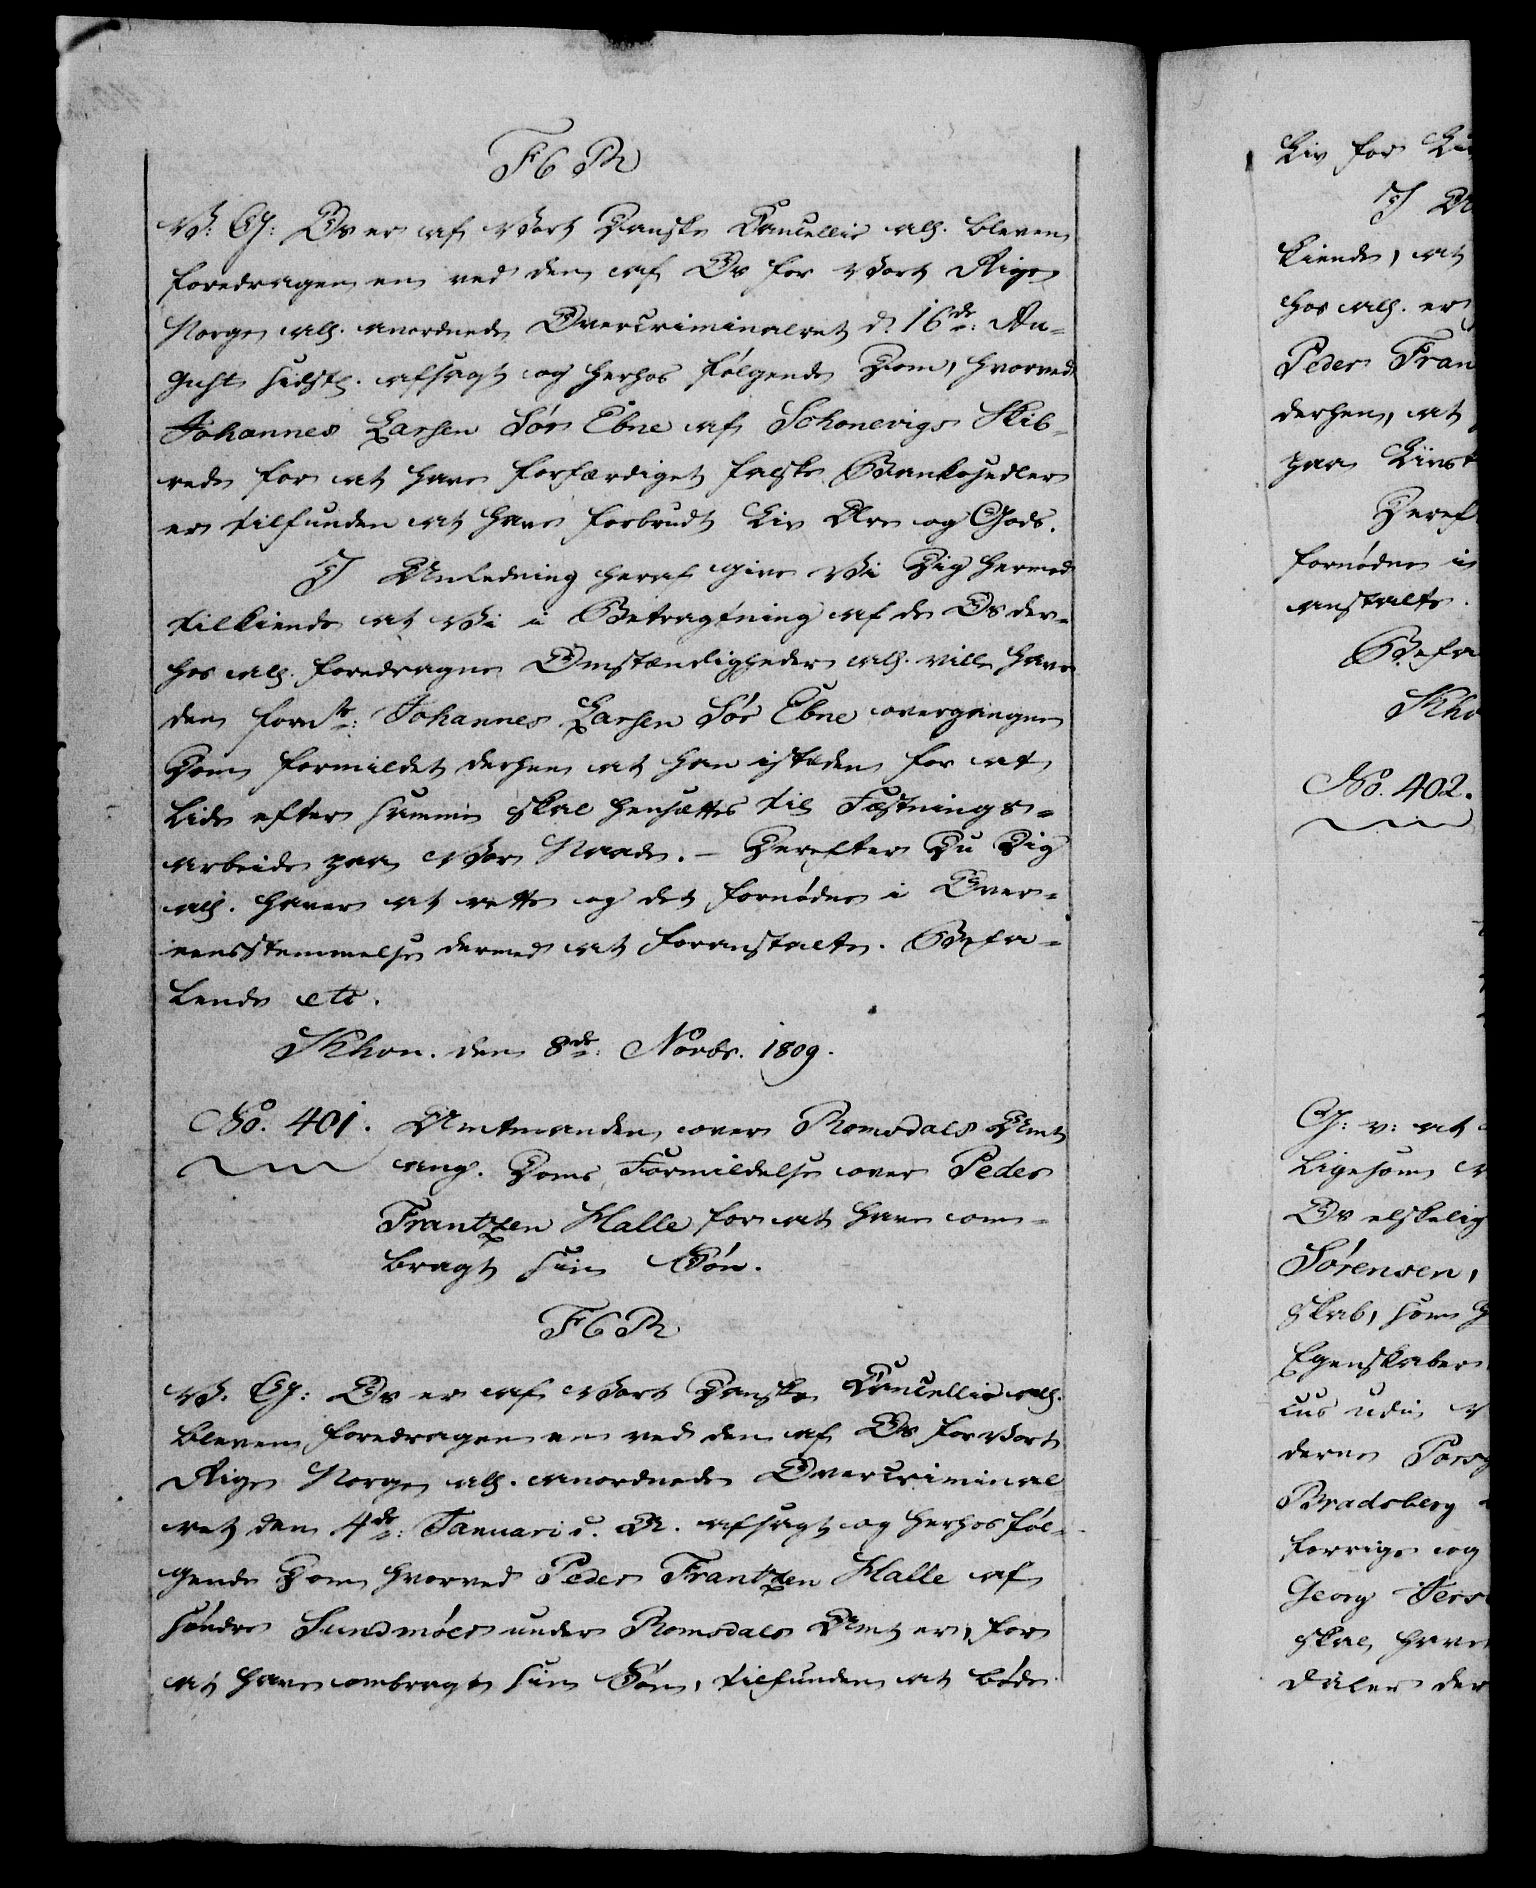 F 6 R
V. G: Os er af Vort Danske Cancellie all. bleven
foredragen en ved den af Os for Vort Rige
Norge all. anordnede Overcriminalret d. 16de: Au-
gust sidstl. afsagt og herhos følgende Dom, hvorved
Johannes Larsen Sør Ebne af Schonevigs Skib-
rede for at have forfærdiget falske Bankosedler
er tilfunden at have forbrudt Liv Ære og Gods.
I Anledning heraf give Vi Dig hermed
tilkiende at Vi i Betragtning af de Os der-
hos all. foredragne Omstændigheder all. ville have
den fornte: Johannes Larsen Sør Ebne overgangne
Dom formildet derhen at han istæden for at
lide efter samme skal hensættes til Fæstnings-
arbeide paa Vor Naade. – Derefter Du Dig
all. haver at rette og det fornødne i Over-
eensstemmelse dermed at foranstalte. Befa-
lende etc.
Khvn. den 8de: Novbr. 1809.
No. 401. Amtmanden over Romsdals Amt
ang. Doms Formildelse over Peder
Frantzen Halle for at have om-
bragt sin Søn.
F 6 R
V. G: Os er af Vort Danske Cancellie all.
bleven foredragen en ved den af Os for Vort
Rige Norge all. anordnede Overcriminal
ret den 4de: Januari d. A. afsagt og herhos føl-
gende Dom hvorved Peder Frantzen Halle af
søndre Sundmöer under Romsdals Amt er, for
at have ombragt sin Søn, tilfunden at bøde
Liv for
I
kiende, at
hos all. er
Peder Fran
derhen, at
paa Livst
Deref
fornødne i
anstalte.
Befa
Khv
No. 402.
G: v: at
Ligesom
Os elskelig
Sörensen,
skab, som
Egenskaber
cus udi
derne Pors
Bradsberg
forrige og
Georg
skal have
daler der